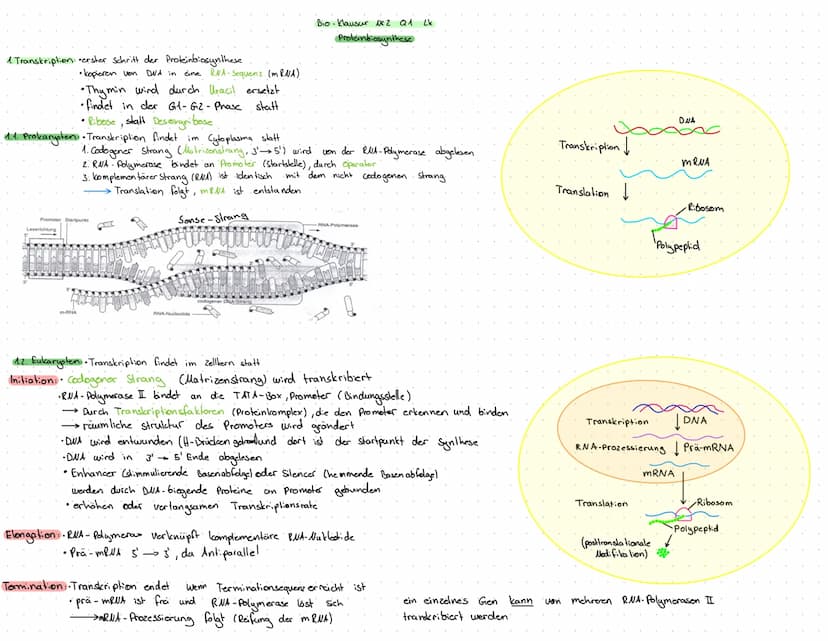 Bio-Klausur Nr.2 Q1 Lk
Proteinbiosynthese
1. Transkription • erster Schritt der Proteinbiosynthese
• kopieren von DNA in eine RNA-Sequenz (mRNA)
• Thymin wird durch Uracil ersetzt
• findet in der G1-G2-Phase statt
• Ribose, statt Desoxyribose
1.1 Prokaryoten • Transkription findet im Cytoplasma statt
1. Codogener Strang (Matrizenstrang, 3' → 5') wird von der RNA-Polymerase abgelesen
2. RNA-Polymerase bindet an Promoter (Startstelle), durch Operator
3. komplementärer Strang (RNA) ist identisch mit dem nicht codogenen Strang
→ Translation folgt, mRNA ist entstanden
DNA
Transkription ↓
mRNA
Translation ↓
Ribosom
Polypeptid
Sense-Strang
Promoter Startpunkt
RNA-Polymerase
Leserichtung
codogener DNA-Strang
m-RNA
RNA-Nucleotide
1.2 Eukaryoten • Transkription findet im Zellkern statt
Initiation: • Codogener Strang (Matrizenstrang) wird transkribiert
• RNA-Polymerase II bindet an die TATA-Box, Promoter (Bindungsstelle)
→ Durch Transkriptionsfaktoren (Proteinkomplex), die den Promoter erkennen und binden
→ räumliche Struktur des Promoters wird geändert
• DNA wird entwunden (H-Brücken getrennt) und dort ist der Startpunkt der Synthese
• DNA wird in 3' → 5' Ende abgelesen
• Enhancer (stimmulierende Basenabfolge) oder Silencer (hemmende Basenabfolge)
werden durch DNA-biegende Proteine an Promoter gebunden
• erhöhen oder verlangsamen Transkriptionsrate
Elongation: • RNA-Polymerase verknüpft komplementäre RNA-Nukleotide
• Prä-mRNA 5' → 3', da Antiparallel
Termination: • Transkription endet wenn Terminationsequenz erreicht ist
• prä-mRNA ist frei und RNA-Polymerase löst sich
→ mRNA-Prozessierung folgt (Reifung der mRNA)
Transkription ↓ DNA
RNA-Prozessierung ↓ Prä-mRNA
mRNA
Translation
Ribosom
Polypeptid
(posttranslationale
Modifikation)
ein einzelnes Gen kann von mehreren RNA-Polymerasen II
transkribiert werden